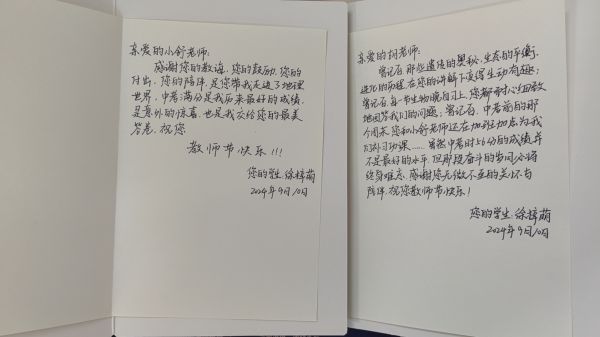 亲爱的小舒老师：
感谢您的教诲，您的鼓励，您的
付出，您的陪伴，是您带我走进了地理
世界，中考满分是我历来最好的成绩，
是意外的惊喜，也是我交给您的最美
答卷，祝您
教师节快乐！！！
您的学生：徐梓萌
2024年9月10日
亲爱的胡老师：
曾记否，那些遗传的奥秘，生态的平衡，
进化的历程，在您的讲解下变得生动有趣；
曾记否，每一节生物晚自习上，您都耐心细致
地回答我们的问题；曾记否，中考前的那
个周末，您和小舒老师还在加班加点为我
们补习功课……虽然中考时56分的成绩并
不是最好的水平，但那段奋斗的时间必将
终身难忘，感谢您无微不至的关怀与
陪伴，祝您教师节快乐！
您的学生：徐梓萌
2024年9月10日